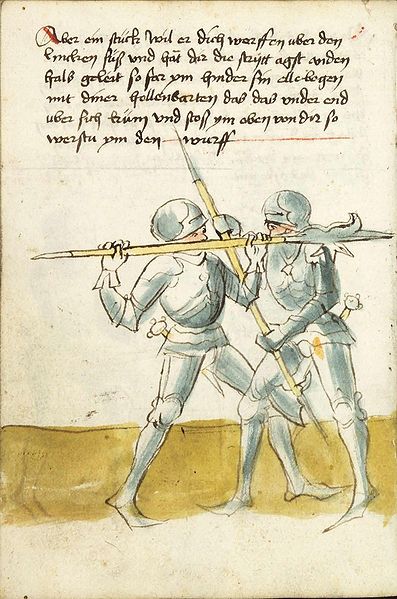 Aber ein stuck wil er dich werffen uber den
lincken füß und hat dir die stryt agst an den
hals geleit so far ym hinder sin ellebogen
mit diner hellenbarten das das under end
uber sich kum und stoß ym oben von dir so
werstu ym den wurff